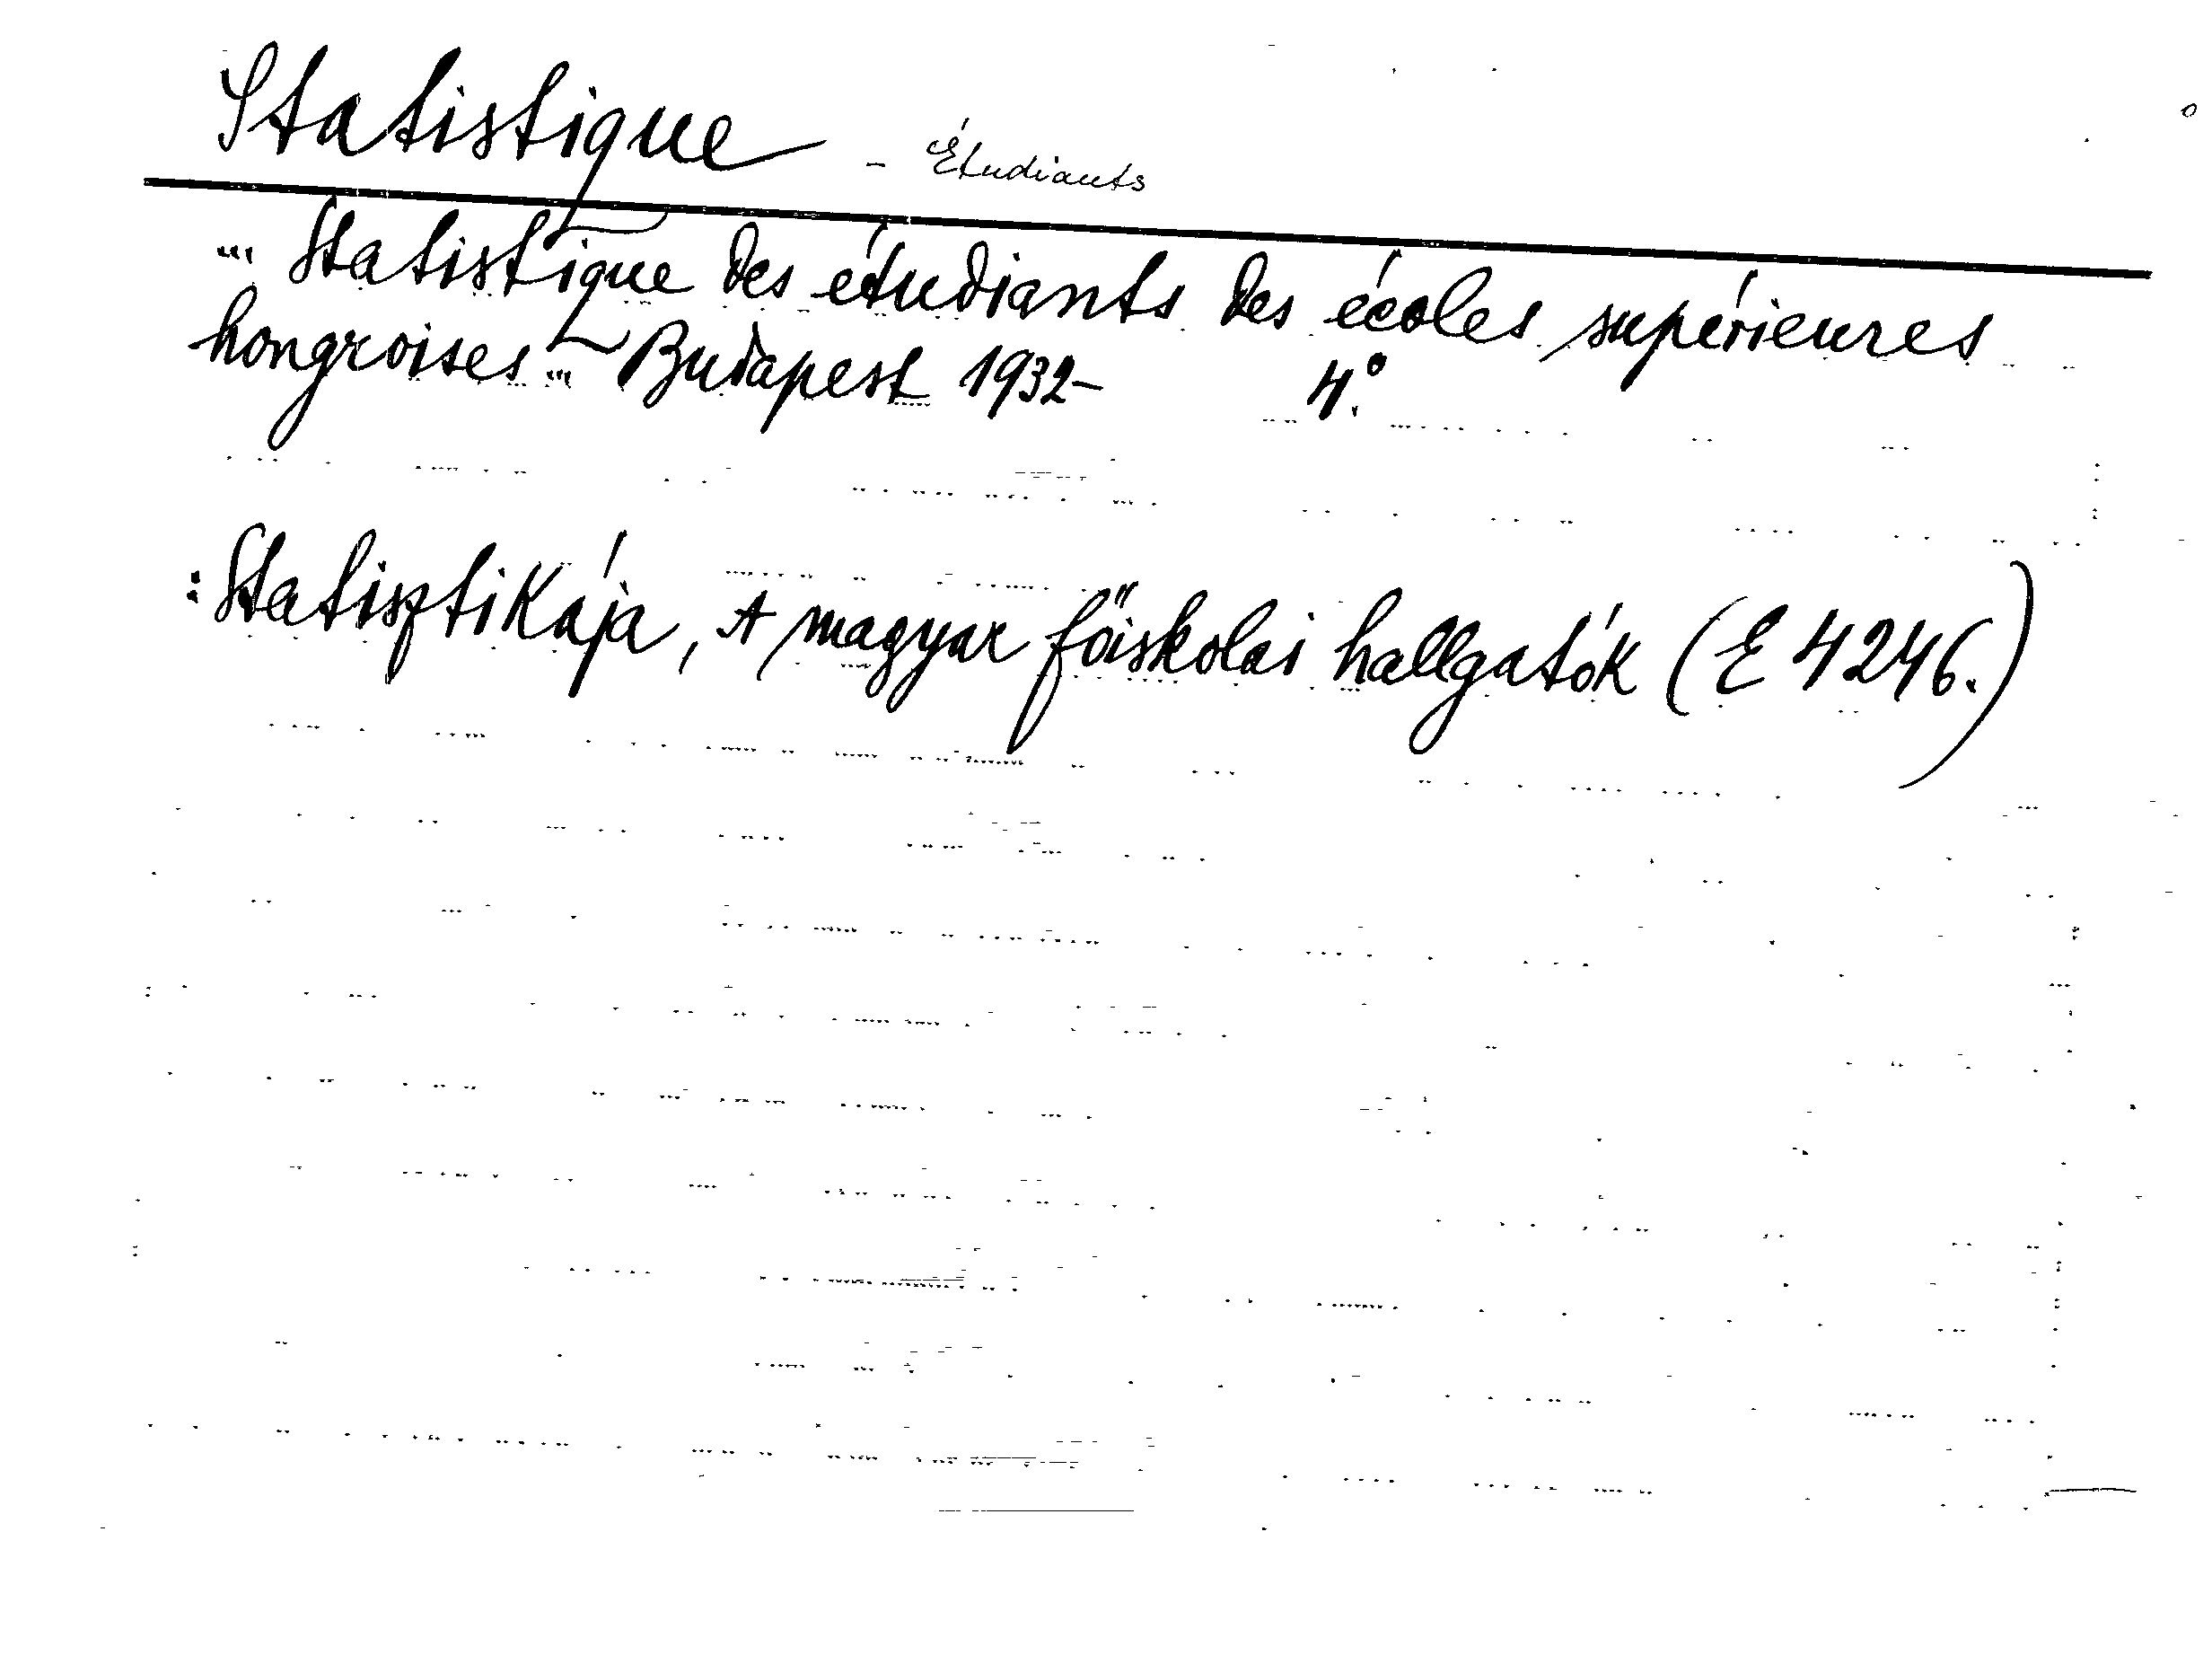 Statistique - Étudiants
... Statistique des étudiants des écoles supérieures
hongroises ... Budapest 1932- 4.°
: Statisztikája, A magyar főiskolai hallgatók (E 4246.)